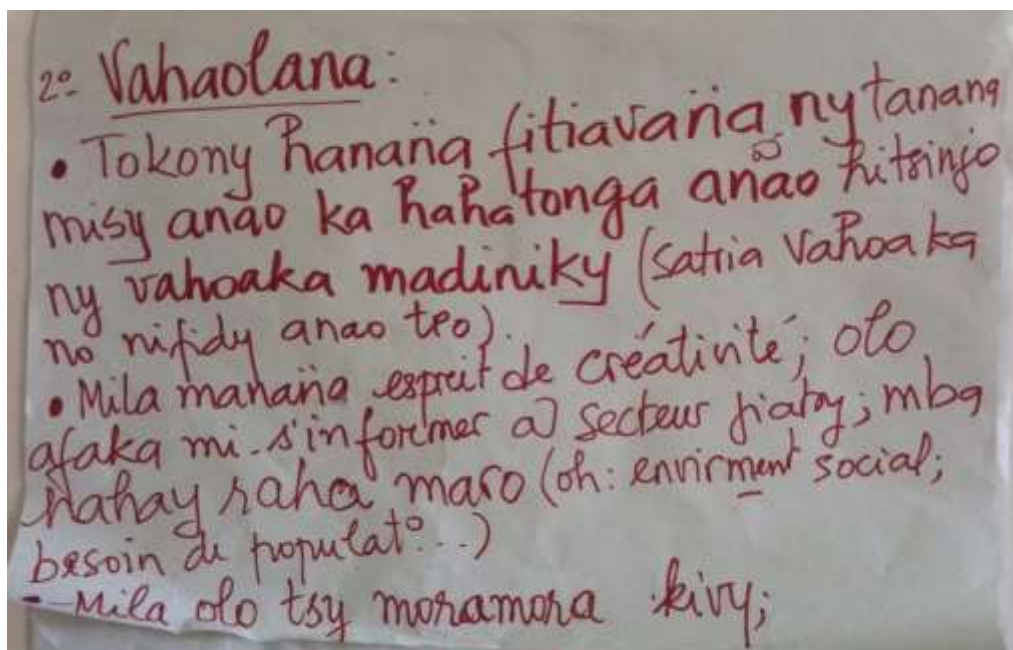 2°- Vahaolana:
• Tokony hanaña fitiavaña ny tanana
misy anao ka hahatonga anao hitsinjo
ny vahoaka madiniky (satria vahoaka
no nifidy anao teo).
• Mila manaña esprit de créativité; olo
afaka mi-s'informer a) secteur jiaby; mba
hahay raha maro (oh: envirment social;
besoin de populat°...)
- Mila olo tsy moramora kivy;